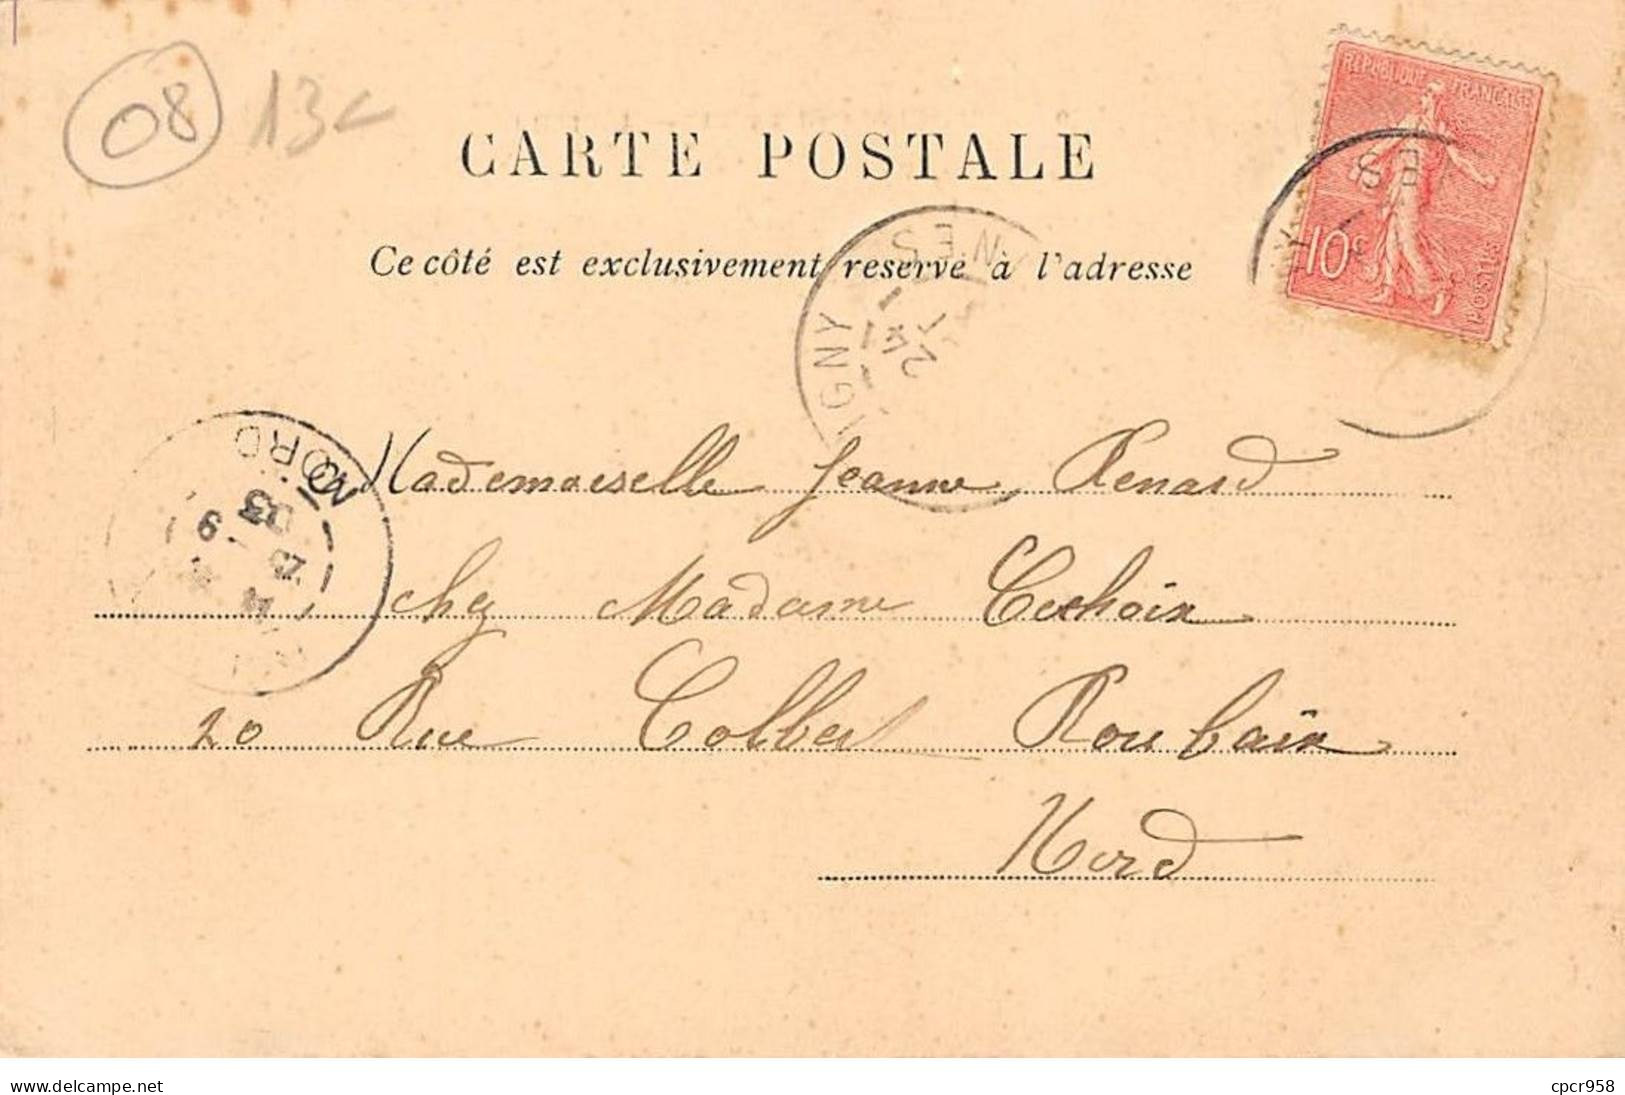 08 13c
CARTE POSTALE
Ce côté est exclusivement réservé à l'adresse
REPUBLIQUE FRANÇAISE
10c
POSTES
IGNY
24
NORD
03
Mademoiselle Jeanne Renard
chez Madame
20 Rue Colbert Roubaix
Nord
www.delcampe.net
cpcr958